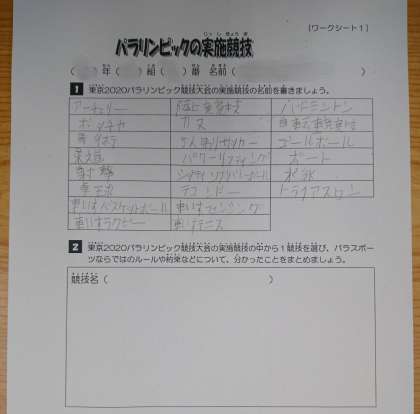 (ワークシート１)
パラリンピックの実施競技
じっし きょうぎ
(　　)年(　　)組(　　)番 名前(　　　　　　　　)
1 東京2020パラリンピック競技大会の実施競技の名前を書きましょう。
アーチェリー 陸上競技 バドミントン
ボッチャ カヌー 自転車競技
馬術 5人制サッカー ゴールボール
柔道 パワーリフティング ボート
射撃 シッティングバレーボール 水泳
卓球 テコンドー トライアスロン
車いすバスケットボール 車いすフェンシング
車いすラグビー 車いすテニス
2 東京2020パラリンピック競技大会の実施競技の中から１競技を選び、パラスポー
ツならではのルールや約束などについて、分かったことをまとめましょう。
競技名(　　　　　　　　　　)